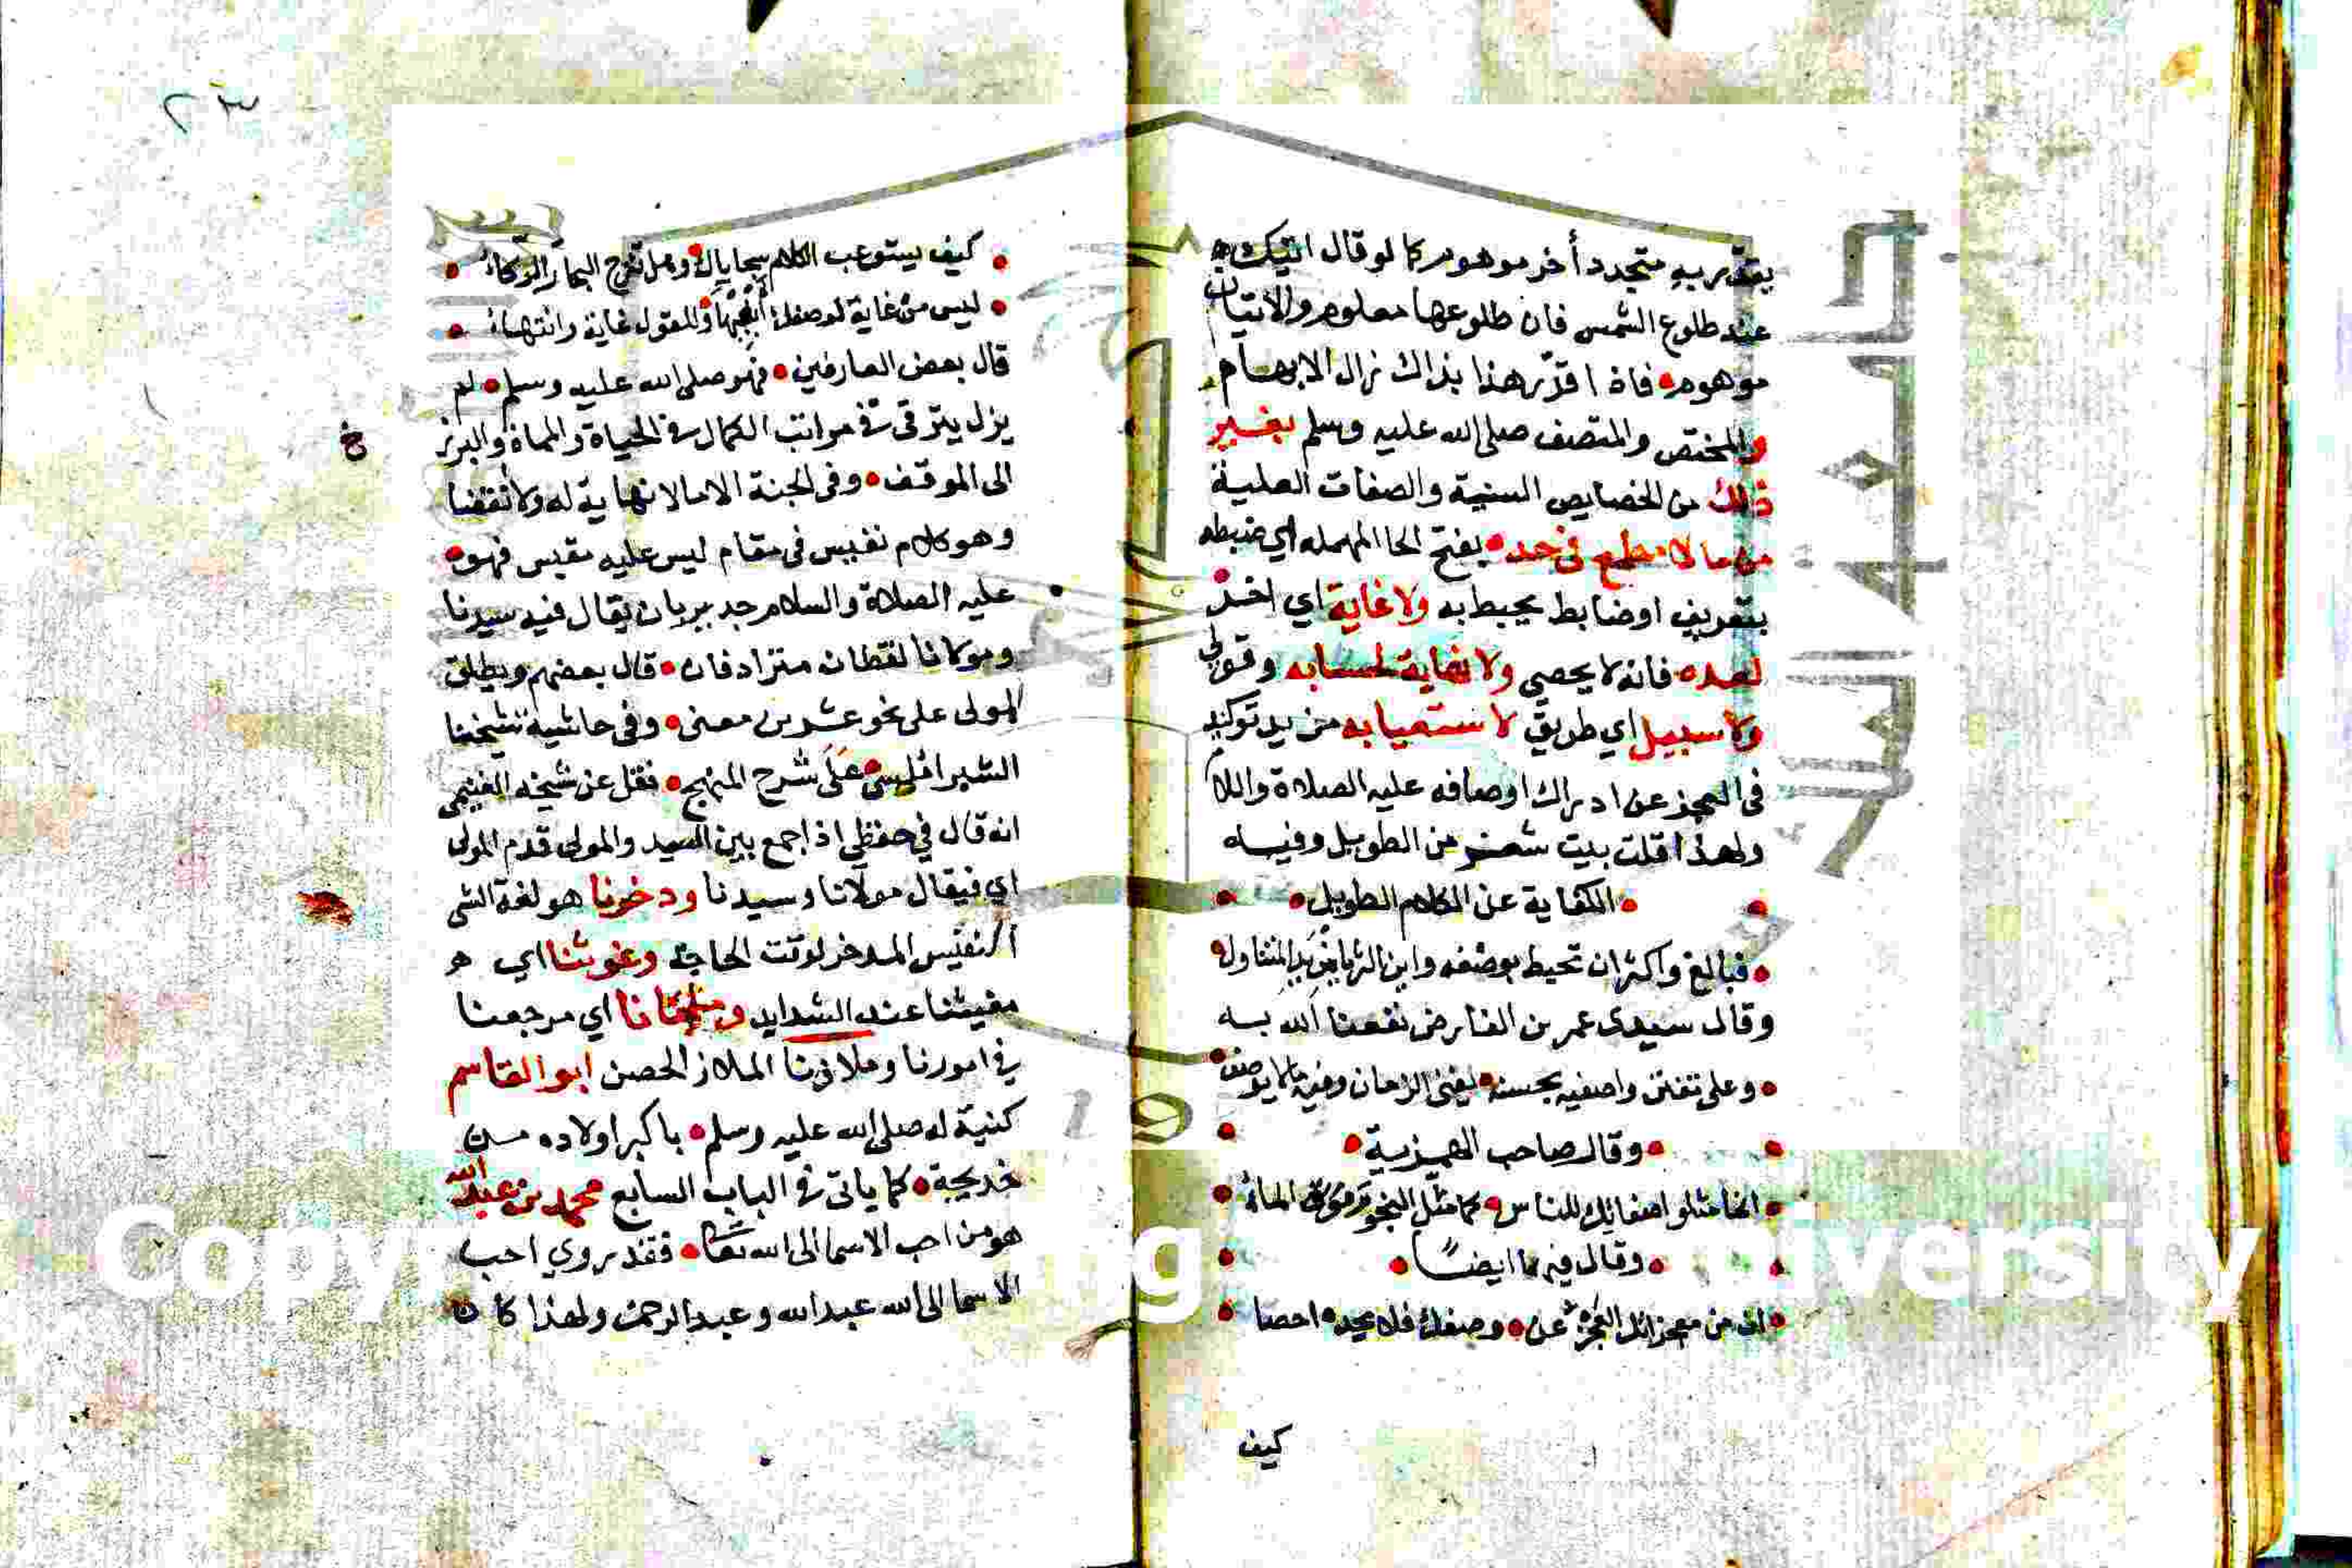 يقدر به متجدد أخر موهوم كما لو قال اتيتك
عند طلوع الشمس فان طلوعها معلوم والاتيان
موهوم فاذا قدر هذا بذاك زال الابهام
والمختص والمتصف صلى الله عليه وسلم بغير
ذلك من الخصايص السنية والصفات العلية
مما لا مطمع في حده بفتح الحا المهمله اي ضبطه
بتعريف او ضابط يحيط به ولا غاية اي اخذ
لعده فانه لا يحصي ولا نهاية لحسابه وقولي
ولا سبيل اي طريق لاستعيابه من يد توكيد
في العجز عن ادراك اوصافه عليه الصلاة واللام
ولهذا قلت بيت شعر من الطويل وفيه
الكفاية عن الكلام الطويل
فبالغ واكثر ان تحيط بوصفه واين الثريا من يد المتناول
وقال سيدي عمر بن الفارض نفعنا الله به
وعلى تفنن واصفيه بحسنه يفنى الزمان وفيه مالم يوصف
وقال صاحب الهمزية
انما مثلوا صفاتك للناس كما مثل النجوم الماء
وقال فيها ايضا
ان من معجزاتك العجز عن وصفك فلا يحده احصا
كيف
٢٣
كيف يستوعب الكلام سجاياك وهل تنزح البحار الركاء
ليس من غاية لوصفك أبغيها وللقول غاية وانتهاء
قال بعض العارفين فهو صلى الله عليه وسلم لم
يزل يترقى في مراتب الكمال في الحياة والمماة والبرز
خ
الى الموقف وفي الجنة الا ما لا نهاية له ولا انقضا
وهو كلام نفيس في مقام ليس عليه مقيس فهو
عليه الصلاة والسلام جدير بان يقال فيه سيدنا
ومولانا لفظان مترادفان قال بعضهم ويطلق
المولى على نحو عشرين معنى وفي حاشية شيخنا
الشبراملسي على شرح المنهج نقل عن شيخه الغنيمي
انه قال في حفظي اذا جمع بين السيد والمولى قدم المولى
اي فيقال مولانا وسيدنا ودخرنا هو لغة الشي
النفيس المدخر لوقت الحاجة وغوثنا اي هو
مغيثنا عند الشدايد وملجانا اي مرجعنا
في امورنا وملاذنا الملاز الحصن ابو القاسم
كنية له صلى الله عليه وسلم باكبر اولاده من
خديجة كما ياتي في الباب السابع محمد بن عبد الله
هو من احب الاسما الى الله تعا فقد روي احب
الاسما الى الله عبد الله وعبد الرحمن ولهذا كان